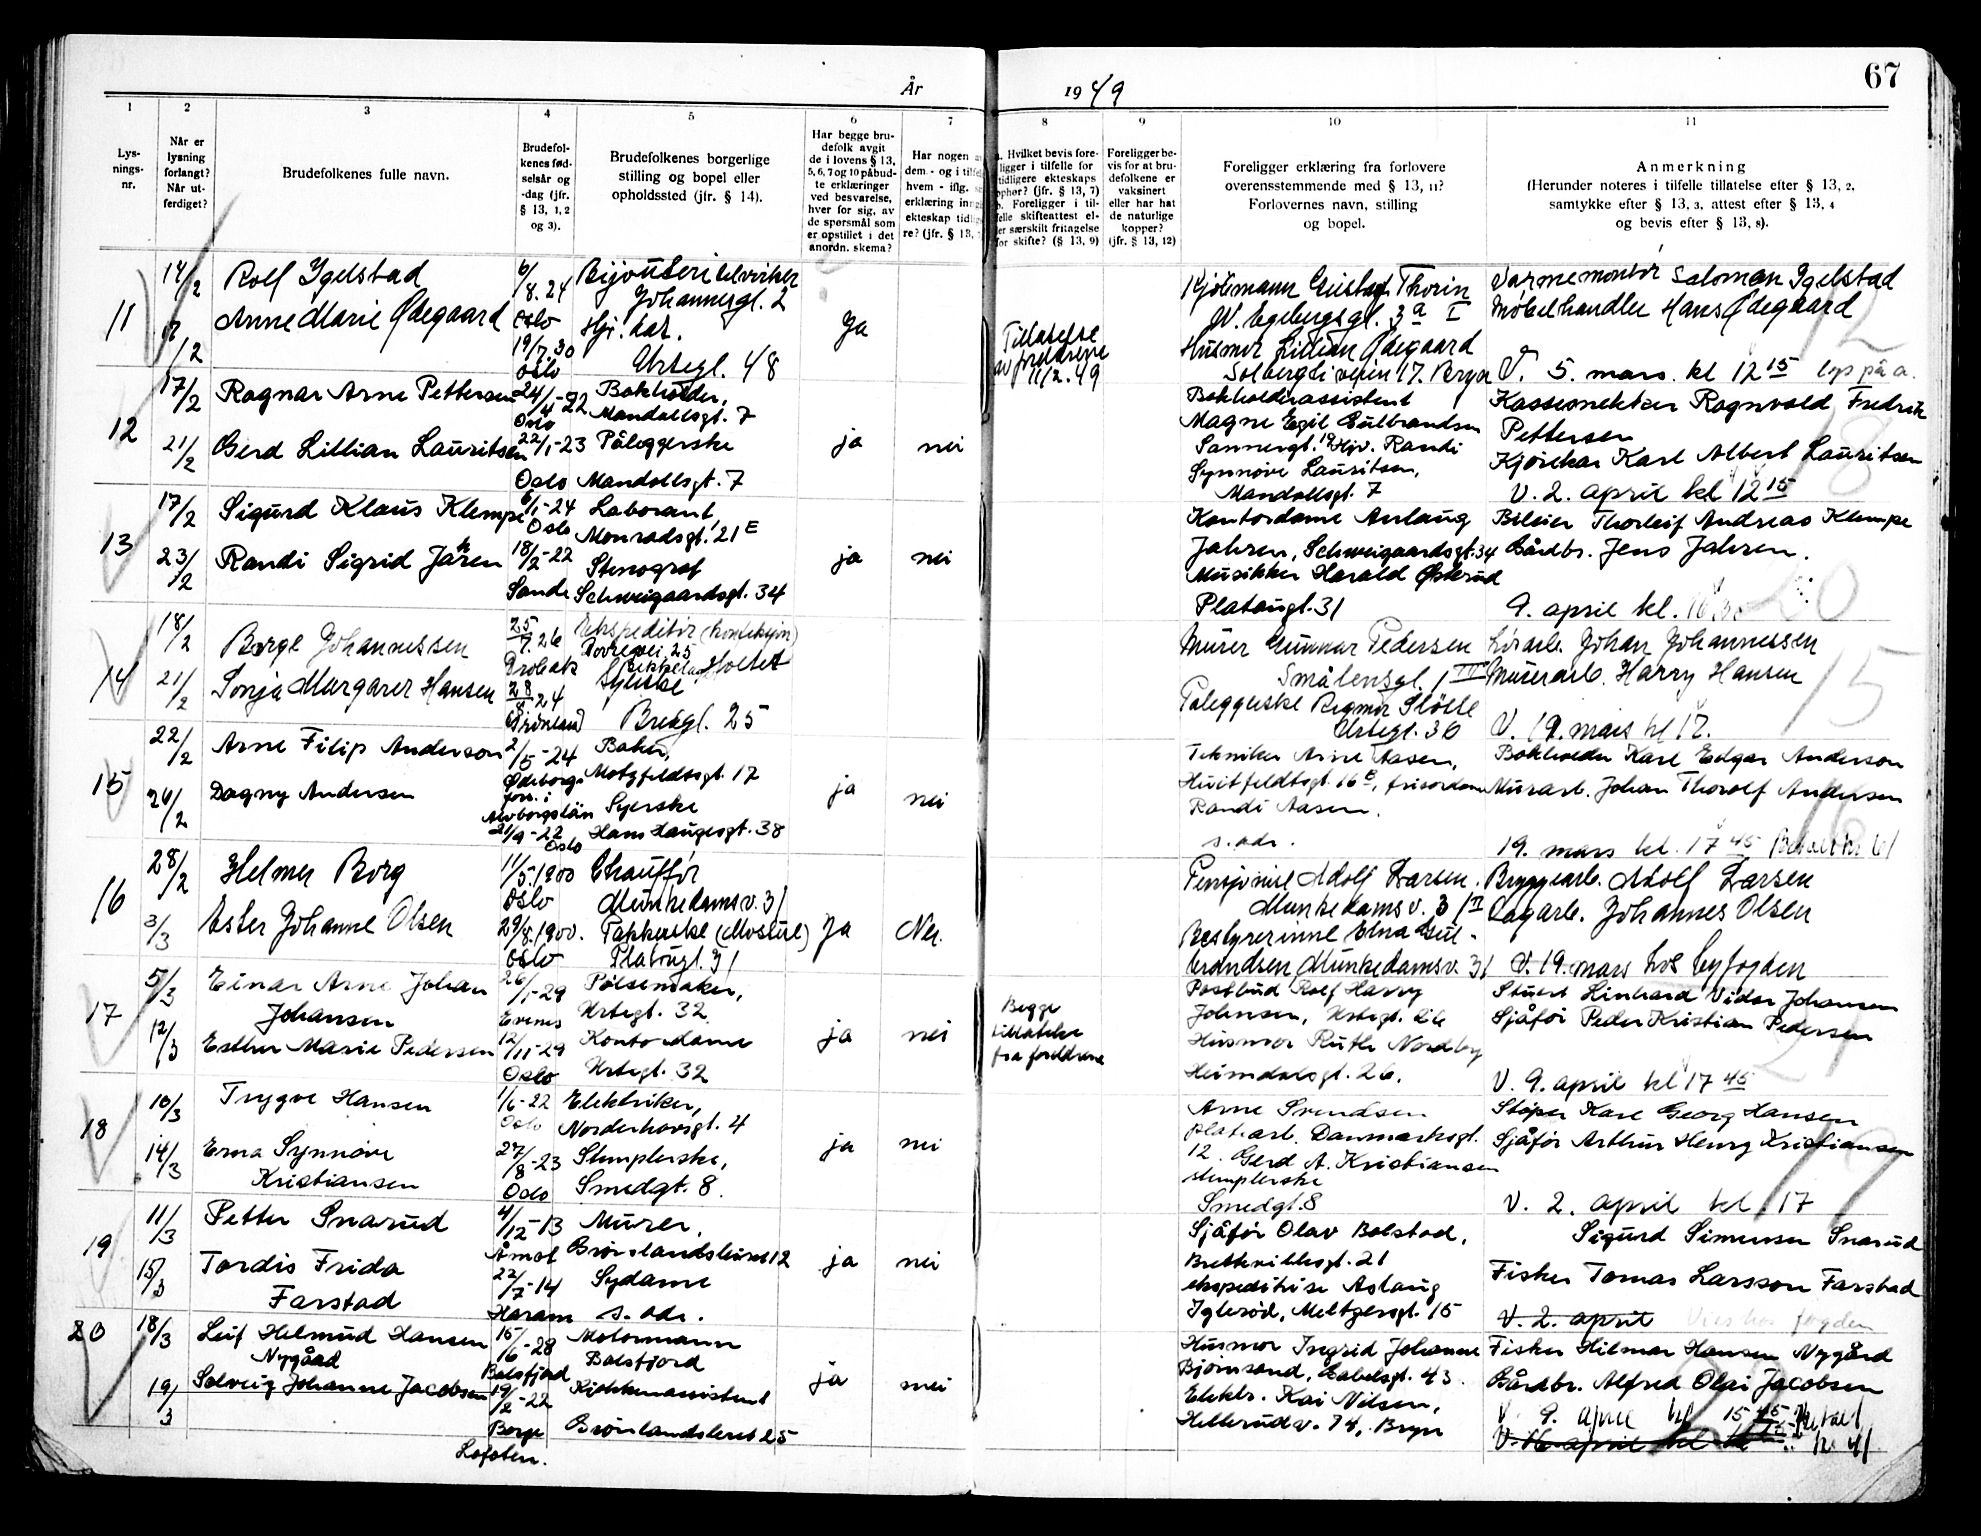 67
År 1949
1
2
3
4
5
6
7
8
9
10
11
Lys-
nings-
nr.
Når er
lysning
forlangt?
Når ut-
ferdiget?
Brudefolkenes fulle navn.
Brudefol-
kenes fød-
selsår og
-dag (jfr.
§ 13, 1, 2
og 3).
Brudefolkenes borgerlige
stilling og bopel eller
opholdssted (jfr. § 14).
Har begge bru-
defolk avgit
de i lovens § 13,
5, 6, 7 og 10 påbud-
te erklæringer
ved besvarelse,
hver for sig, av
de spørsmål som
er opstillet i det
anordn. skema?
Har nogen a
dem - og i tilfel
hvem - iflg. s
erklæring inng
ekteskap tidlig
re? (jfr. § 13,
. Hvilket bevis fore-
ligger i tilfelle for
tidligere ekteskaps
ophør? (jfr. § 13, 7)
b. Foreligger i til-
felle skifteattest el-
er særskilt fritagelse
for skifte? (§ 13, 9)
Foreligger be-
vis for at bru-
defolkene er
vaksinert
eller har hat
de naturlige
kopper?
(jfr. § 13, 12)
Foreligger erklæring fra forlovere
overensstemmende med § 13, 11?
Forlovernes navn, stilling
og bopel.
Anmerkning
(Herunder noteres i tilfelle tillatelse efter § 13, 2.
samtykke efter § 13, 3, attest efter § 13, 4
og bevis efter § 13, 8).
11
14/2
17/2
Rolf Igelstad
Anne Marie Ødegaard
6/8.24
Oslo
19/7.30
Oslo
Bijouteritilvirker
Johannesgt. 2
Hji. hat.
Urtegt. 48
Ja
Tillatelse
av foreldrene
11/2.49
Kjømann Gustav Thorin
W. Egebergsgt. 3a I
Husmor Lillian Ødegaard
Solbergliveien 17. Bryn
Varmemontør Saloman Igelstad
Møbelhandler Hans Ødegaard
V. 5. mars. kl 12 15 lys på a.
12
12
17/2
21/2
Ragnar Arne Pettersen
Gerd Lillian Lauritsen
24/4-22
Oslo
22/1-23
Oslo
Bokholder,
Mandallsgt. 7
Påleggerske
Mandallsgt. 7
ja
nei
Bokholderassistent
Magne Egil Gulbrandsen
Sannergt. 19 Hjv. Randi
Synnøve Lauritsen,
Mandallsgt. 7
Kasserer Ragnvald Fredrik
Pettersen
Kjørekar Karl Albert Lauritsen
V. 2. april kl 12 15
18
13
17/2
23/2
Sigurd Klaus Klempe
Randi Sigrid Jahren
6/1-24
Oslo
18/2-22
Sande
Laborant,
Monradsgt. 21 E
Stenograf
Schweigaardsgt. 34
ja
nei
Kontordame Aslaug
Jahren, Schweigaardsgt. 34
Musikker Harald Østerud
Platougt. 31
Bileier Thorleif Andreas Klempe
Gårdbr. Jens Jahren.
9. april kl. 16 30
20
14
18/2
21/2
Børge Johannessen
Sonja Margaret Hansen
25/7.26
Drøbak
28/8-24
Grønland
Ekspeditør (konfeksjon)
Dovrevei 25
Syerske
Bredgt. 25
Murer Gunnar Pedersen
Smålensgt. 1 III
Påleggerske Regmor Stölle
Urtegt. 36
Løsarb. Johan Johannessen
Murerarb. Harry Hansen
V. 19. mars kl 17.
15
15
22/2
26/2
Arne Filip Anderson
Dagny Andersen
2/5-24
Ødeborgs
fors. i
Alvborgslän
21/9-22
Oslo
Baker,
Motzfeldtsgt. 17
Syerske
Hans Haugesgt. 38
ja
nei
Tekniker Arne Aasen,
Huitfeldtsgt 16 B, frisørdame
Randi Aasen.
s. adr.
Bokholder Karl Edgar Anderson
Murarb. Johan Thorolf Andersen
19. mars kl. 17 45
16
16
28/2
3/3
Helmer Borg
Ester Johanne Olsen
11/5.1900
Oslo
29/8.1900.
Oslo
Chauffør
Munkedamsv. 31
Pakkerske (Mosture)
Platougt. 31
Ja
Nei.
Pensjonist Adolf Larsen.
Munkedamsv. 31 II
Bestyrerinne Edna Gul-
brandsen Munkedamsv. 31
Bryggearb. Adolf Larsen
Lagarb. Johannes Olsen
V. 19. mars hos byfogden
17
5/3
12/3
Einar Arne Johan
Johansen
Esther Marie Pedersen
26/1-29
Evenes
12/11-29
Oslo
Pølsemaker,
Urtegt. 32
Kontordame
Urtegt. 32
ja
nei
Begge
tillatelse
fra foreldrene
Postbud Rolf Harry
Johnsen, Urtegt. 26
Husmor Ruth Nordby
Heimdalsgt. 26.
Stuert Linhard Vidar Johansen
Sjåfør Peder Kristian Pedersen
V. 9. april kl 17 45
21
18
10/3
14/3
Trygve Hansen
Erna Synnøve
Kristiansen
1/6-22
Oslo
27/8-23
Oslo
Elektriker,
Norderhovsgt. 4
Stemplerske,
Smedgt. 8.
ja
nei
Arne Svendsen
platearb. Danmarksgt.
12. Gerd A. Kristiansen
stemplerske
Smedgt. 8
Støper Karl Georg Hansen
Sjåfør Arthur Henry Kristiansen
V. 2. april kl 17
19
19
11/3
15/3
Petter Snarud
Tordis Frida
Farstad
4/12-13
Åmot
22/7-14
Haram
Murer,
Grønlandsleiret 12
Sydame
s. adr.
ja
nei
Sjåfør Olav Bolstad,
Brettevillesgt. 21
ekspeditrise Aslaug
Iglerød, Meltzersgt. 15
Sigurd Simensen Snarud
Fisker Tomas Larsson Farstad
V. 2. april Vies hos fogden
20
18/3
19/3
Leif Helmud Hansen
Nygård
Solveig Johanne Jacobsen
15/6-28
Balsfjord
19/2-22
Borge
Lofoten.
Motormann
Balsfjord
Kjøkkenassistent
Grønlandsleiret 25
ja
nei
Husmor Ingrid Johanne
Bjørnsand, Gabelsgt. 43.
Elektr. Kai Nilsen,
Hellerudv. 74, Bryn
Fisker Hilmar Hansen Nygård
Gårdbr. Alfred Olai Jacobsen
V. 9. april kl 15 45 Betalt
V. 16 april kl kr. 41